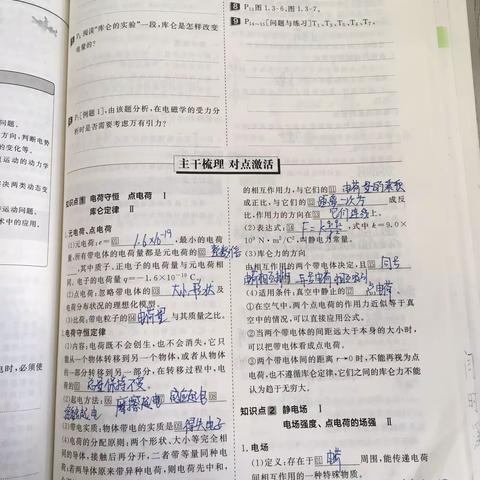 问题。
方向,判断电势
的变化等。
运动的动力学
决两类动态变
运动问题。
术中的应用。
电时,必须使
P₁阅读“库仑的实验”一段,库仑是怎样改变
电量的?
P₇[例题1],由该题分析,在电磁学的受力分
析时是否需要考虑万有引力?
8 P₁₂图1.3-6,图1.3-7。
9 P₁₄~₁₅[问题与练习]T₁、T₃、T₅、T₆、T₇。
主干梳理 对点激活
知识点 1 电荷守恒 点电荷 Ⅰ
库仑定律 Ⅱ
1.元电荷、点电荷
(1)元电荷:e=01 1.6×10⁻¹⁹,最小的电荷
量,所有带电体的电荷量都是元电荷的02 整数倍
,其中质子、正电子的电荷量与元电荷相
同。电子的电荷量q=-1.6×10⁻¹⁹ C。
(2)点电荷:忽略带电体的03 大小 形状 及
电荷分布状况的理想化模型。
(3)比荷:带电粒子的04 电荷量 与其质量之比。
2.电荷守恒定律
(1)内容:电荷既不会创生,也不会消失,它只
能从一个物体转移到另一个物体,或者从物体
的一部分转移到另一部分,在转移过程中,电
荷的05 总量保持不变。
(2)起电方法:06 摩擦起电 07 感应起电 08
接触起电
(3)带电实质:物体带电的实质是09 得失电子
(4)电荷的分配原则:两个形状、大小等完全相
同的导体,接触后再分开,二者带等量同种电
荷;若两导体原来带异种电荷,则电荷先中和,
的相互作用力,与它们的11 电荷量的乘积
成正比,与它们的12 距离二次方 成反
比,作用力的方向在13 它们连线上。
(2)表达式:14,式中k=9.0×
10⁹ N·m²/C²,叫静电力常量。
(3)库仑力的方向
由相互作用的两个带电体决定,且15 同号
(4)适用条件:真空中静止的17 点电荷。
①在空气中,两个点电荷的作用近似等于真
空中的情况,可以直接应用公式。
②当两个带电体的间距远大于本身的大小时,
可以把带电体看成点电荷。
③两个带电体间的距离r→0时,不能再视为点
电荷,也不遵循库仑定律,它们之间的库仑力不能
认为趋于无穷大。
知识点 2 静电场 Ⅰ
电场强度、点电荷的场强 Ⅱ
1.电场
(1)定义:存在于01 电荷 周围,能传递电荷
间相互作用的一种特殊物质。